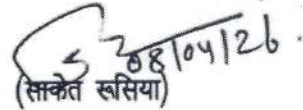 08/04/26
(साकेत रूसिया)